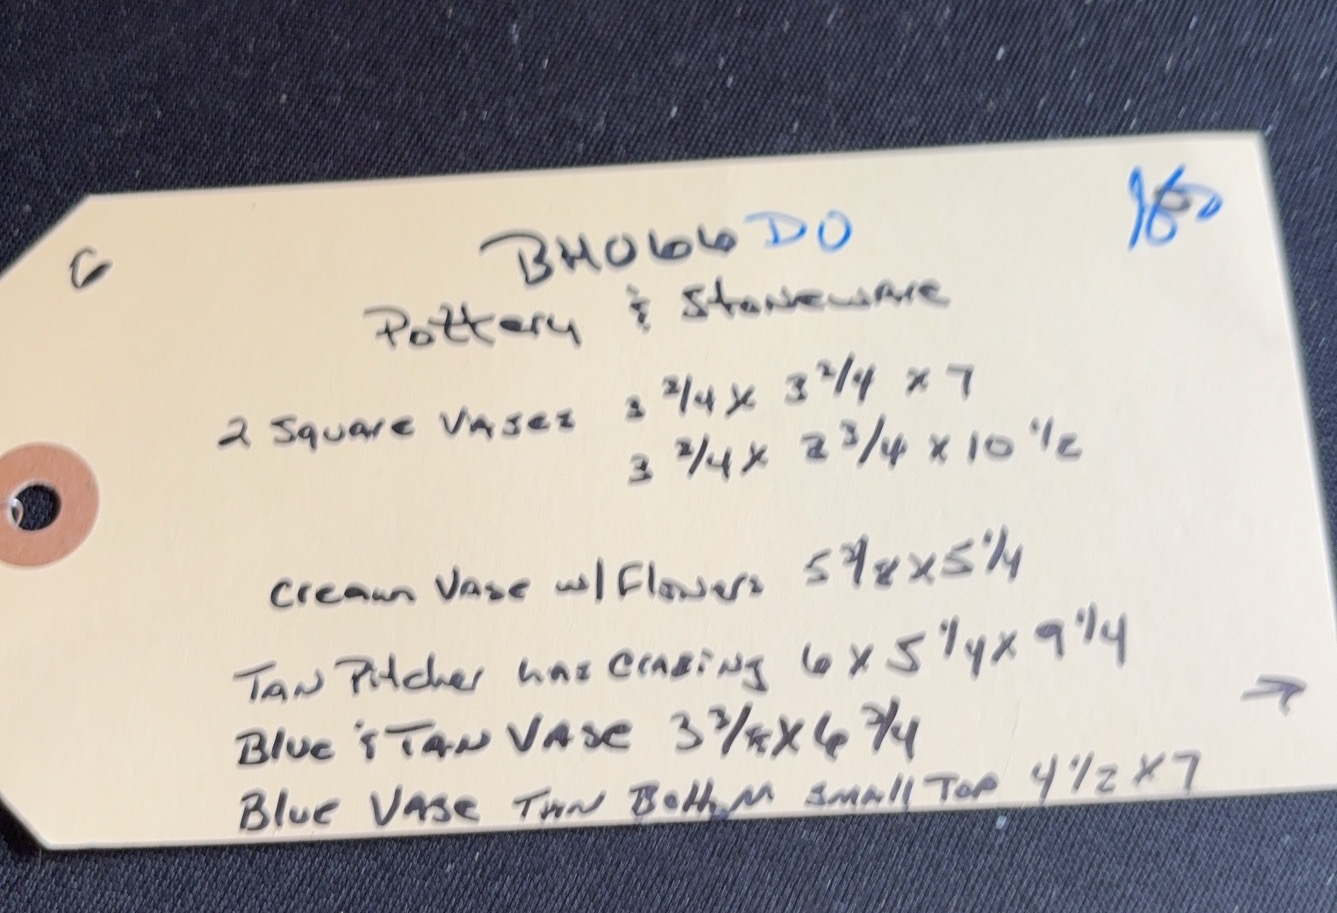 6
BH066 DO
Pottery & Stoneware
2 Square Vases 3 3/4 x 3 3/4 x 7
3 3/4 x 2 3/4 x 10 1/2
Cream Vase w/ Flowers 5 x 5 1/4
Tan Pitcher has Crazing 6 x 5 1/4 x 9 1/4
→
Blue & Tan Vase x 6 3/4
Blue Vase Tan Bottom Small Top 4 1/2 x 7